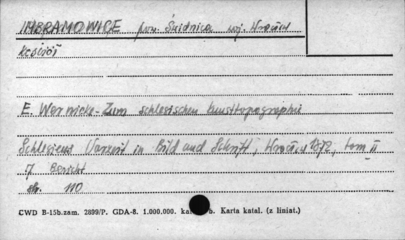 IMBRAMOWICE pow. Świdnica woj. Wrocław
kościół
E. Wernicke - Zum schlesischen Kunsttopographie
Schlesiens Vorzeit in Bild und Schrift, Wrocław 1872, tom II
7 Bericht
str. 110
CWD B-15b.zam. 2899/P. GDA-8. 1.000.000. Karta katal. (z liniat.)